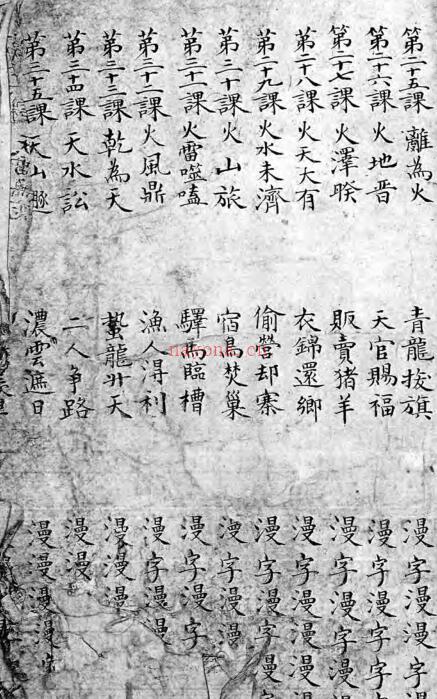 第二十五課 離為火 青龍拔旗 漫字漫字漫
第二十六課 火地晉 天官賜福 漫字漫字漫字
第二十七課 火澤睽 販賣猪羊 漫字漫字漫
第二十八課 火天大有 衣錦還鄉 漫字漫字漫
第二十九課 火水未濟 偷營却寨 漫字漫字漫字
第三十課 火山旅 宿鳥焚巢 漫字漫
第三十一課 火雷噬嗑 驛馬臨槽 漫字漫字
第三十二課 火風鼎 漁人淂利 漫字漫漫
第三十三課 乾為天 蟄龍升天 漫漫漫
第三十四課 天水訟 二人争路 漫漫
第三十五課 山遯 濃雲遮日 漫漫漫漫字
nakona.cn